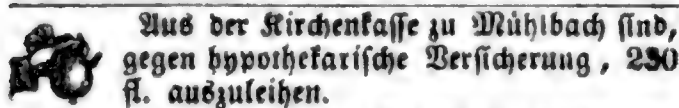 Aus der Kirchenkasse zu Mühlbach sind,
gegen hypothekarische Versicherung, 230
fl. auszuleihen.